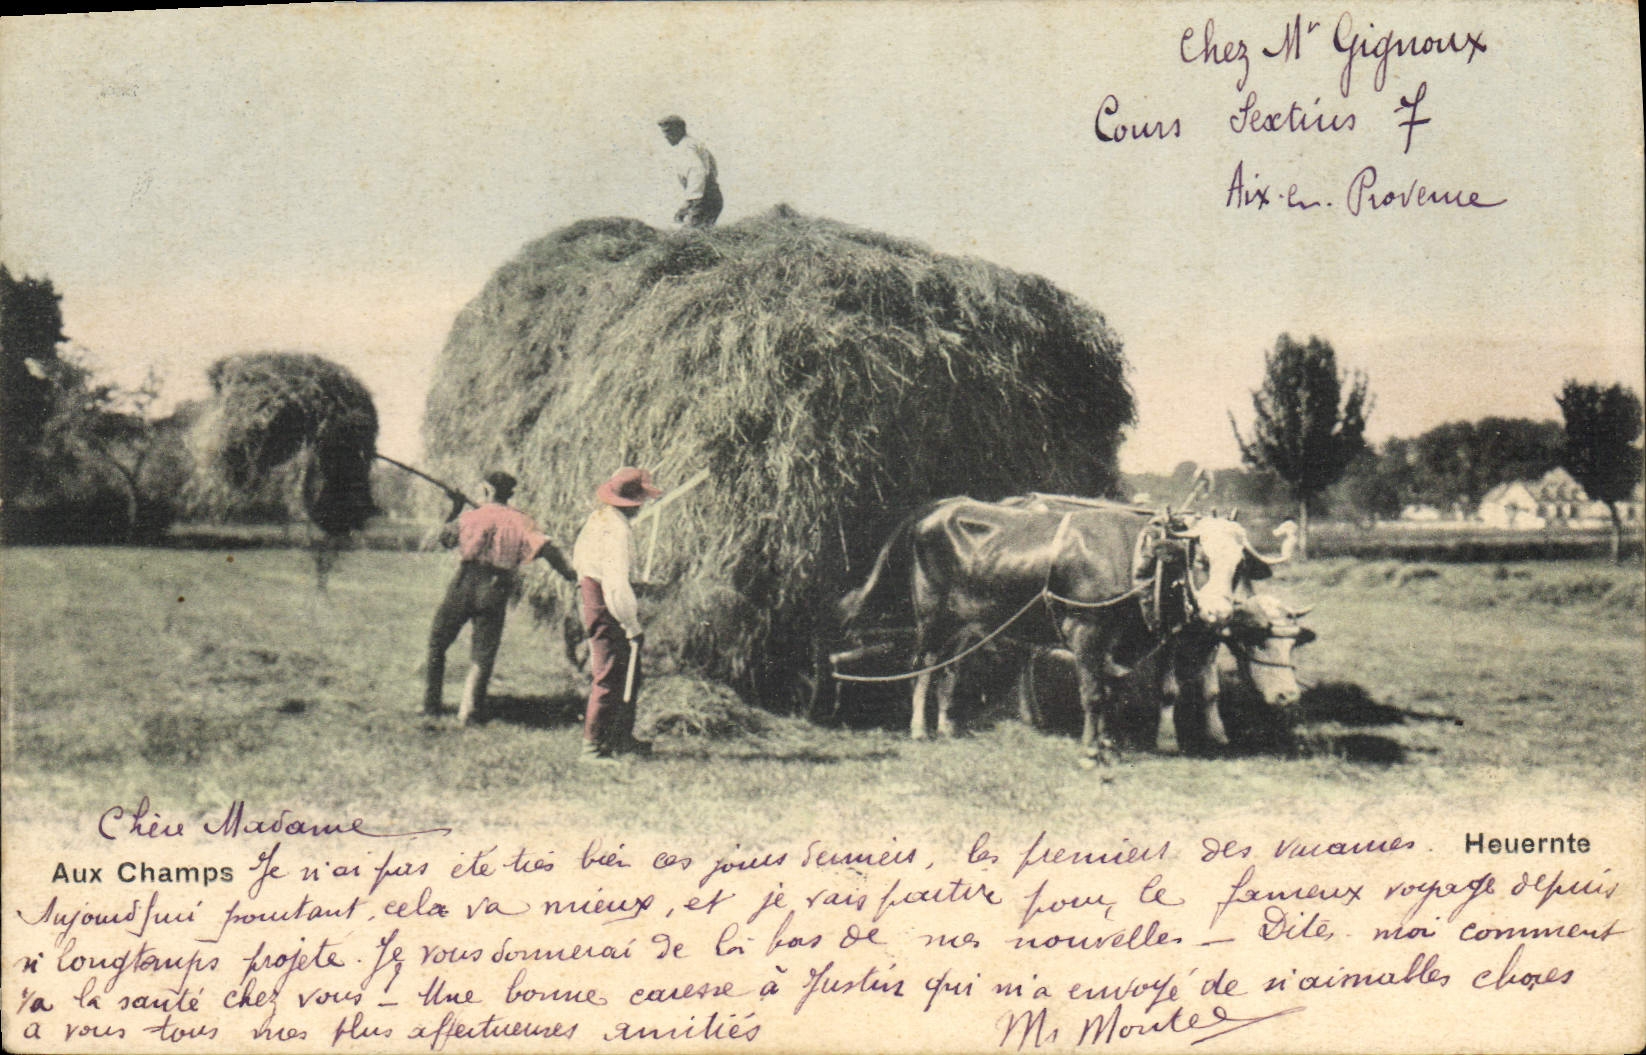 Chez Mr Gignoux
Cours Sextius 7
Aix-en-Provence
Chère Madame
Aux Champs
Heuernte
Je n'ai pas été très bien ces jours derniers, les premiers des vacances.
Aujourd'hui pourtant, cela va mieux, et je vais partir pour le fameux voyage depuis
si longtemps projeté. Je vous donnerai de là bas de mes nouvelles — Dites-moi comment
va la santé chez vous ! — Une bonne caresse à Justin qui m'a envoyé de si aimables choses
à vous tous mes plus affectueuses amitiés